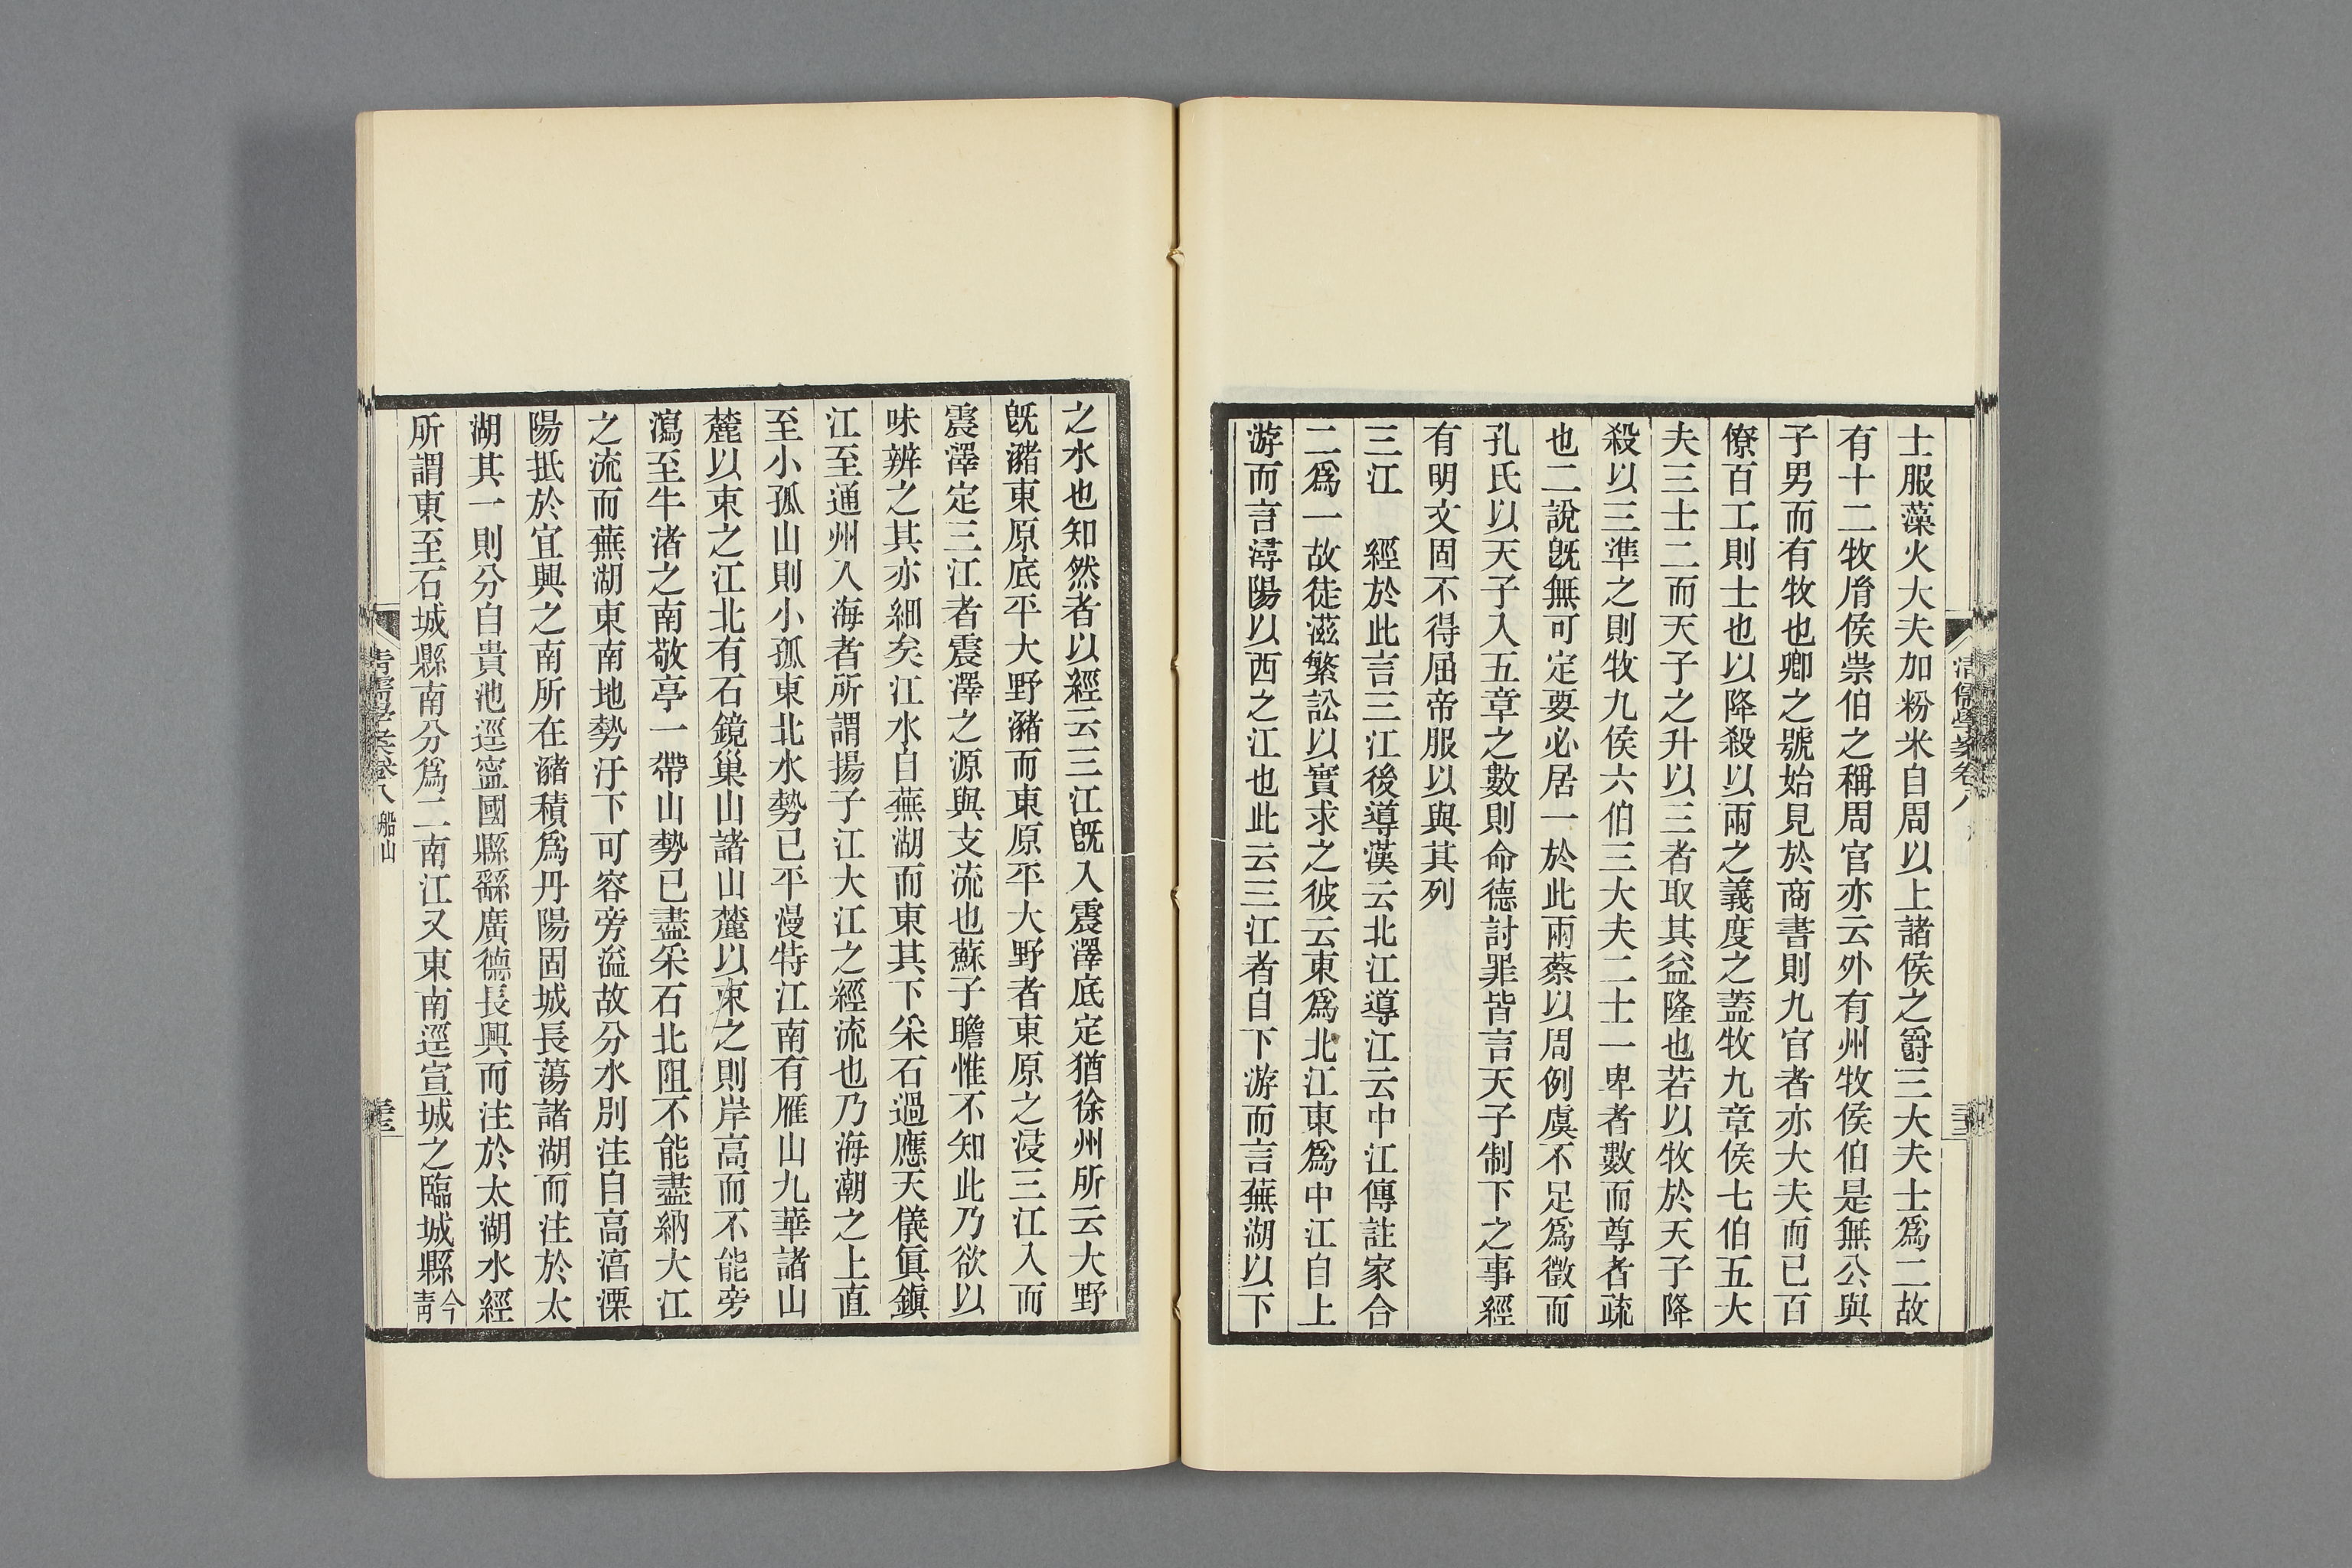 士服藻火大夫加粉米自周以上諸侯之爵三大夫士爲二故
有十二牧㡿侯崇伯之稱周官亦云外有州牧侯伯是無公與
子男而有牧也卿之號始見於商書則九官者亦大夫而已百
僚百工則士也以降殺以兩之義度之蓋牧九章侯七伯五大
夫三士二而天子之升以三者取其益隆也若以牧於天子降
殺以三準之則牧九侯六伯三大夫二士一卑者數而尊者疏
也二說旣無可定要必居一於此兩蔡以周例虞不足爲徵而
孔氏以天子入五章之數則命德討罪皆言天子制下之事經
有明文固不得屈帝服以與其列
三江　經於此言三江後導漢云北江導江云中江傳註家合
二爲一故徒滋繁訟以實求之彼云東爲北江東爲中江自上
游而言潯陽以西之江也此云三江者自下游而言蕪湖以下
清儒學案卷八
之水也知然者以經云三江旣入震澤底定猶徐州所云大野
旣瀦東原底平大野瀦而東原平大野者東原之浸三江入而
震澤定三江者震澤之源與支流也蘇子瞻惟不知此乃欲以
味辨之其亦細矣江水自蕪湖而東其下采石過應天儀眞鎭
江至通州入海者所謂揚子江大江之經流也乃海潮之上直
至小孤山則小孤東北水勢已平漫特江南有雁山九華諸山
麓以束之江北有石鏡巢山諸山麓以束之則岸高而不能旁
瀉至牛渚之南敬亭一帶山勢已盡采石北阻不能盡納大江
之流而蕪湖東南地勢汙下可容旁溢故分水別注自高淳溧
陽抵於宜興之南所在瀦積爲丹陽固城長蕩諸湖而注於太
湖其一則分自貴池逕寍國縣繇廣德長興而注於太湖水經
所謂東至石城縣南分爲二南江又東南逕宣城之臨城縣今青
清儒學案卷八 船山